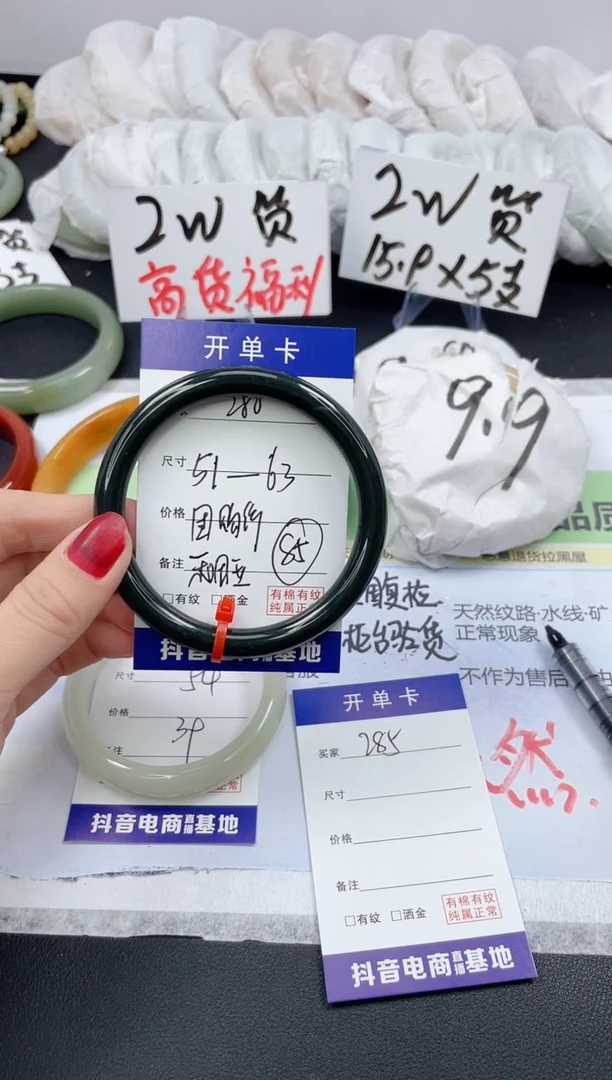 2W 货
高货福利
2W 货
15.9×5支
3支
9.9
开单卡
280
尺寸 51—63
价格
备注 和田玉
85
□有纹 □洒金
有棉有纹
纯属正
抖音 基地
品质
恶意退货拉黑屋
柜台验货
天然纹路·水线·矿
正常现象
不作为售后
然
尺寸 54
价格 39
注
抖音电商直播基地
开单卡
买家 285
尺寸
价格
备注
□有纹 □洒金
有棉有纹
纯属正常
抖音电商直播基地